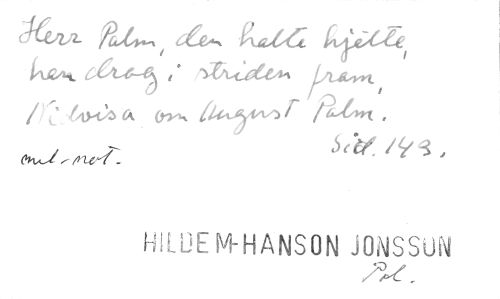 Herr Palm, den halte hjelte,
han drog i striden fram,
Nidvisa om August Palm.
Sid. 149.
mel-not.
HILDEM-HANSON JONSSON
Pol.